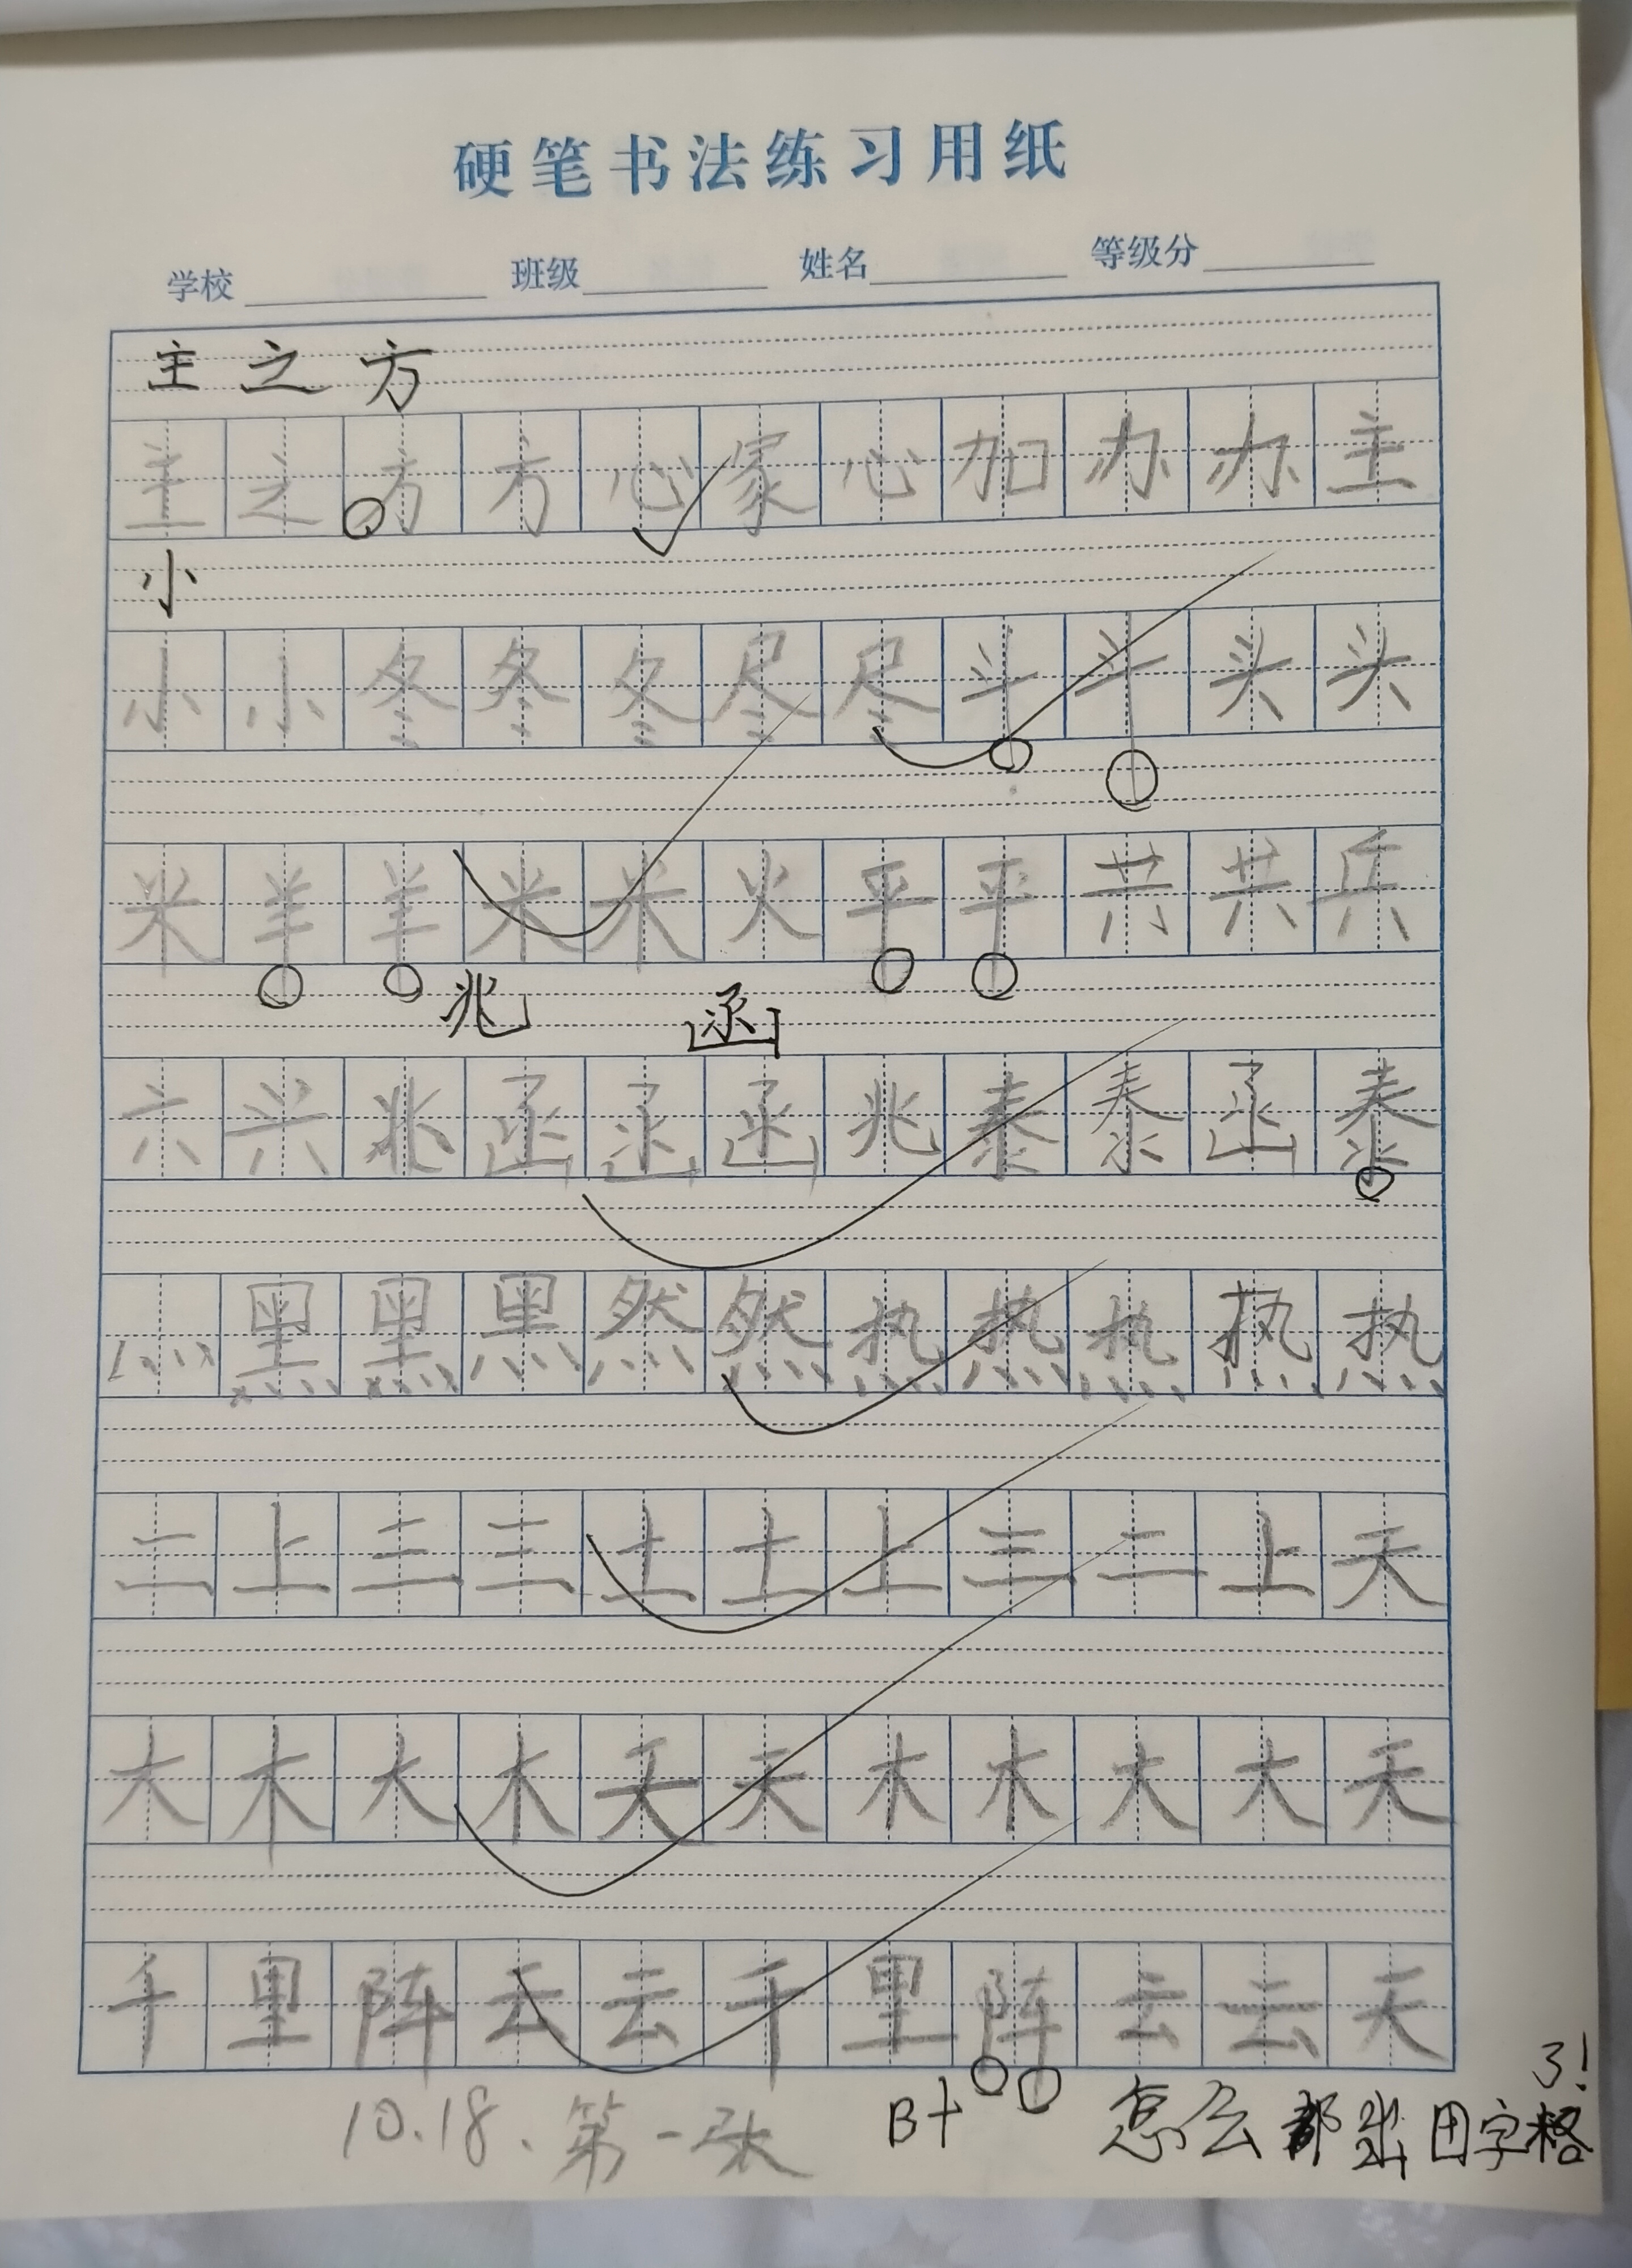 硬笔书法练习用纸
学校 班级 姓名 等级分
主之方
主之方方心冢心加办办主
小
小小冬冬冬尽尽斗斗头头
米羊羊米米火平平共共兵
兆 函
六兴兆函函函兆泰泰函泰
灬黑黑黑然然热热热热热
二上三三土土上三二上天
大木大木天天木木大大天
千里阵云云千里阵云云天
10.18.第一张 B+ 怎么都出田字格了!